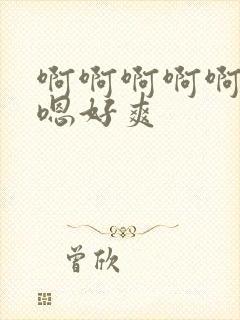 啊啊啊啊啊
嗯好爽
曾欣